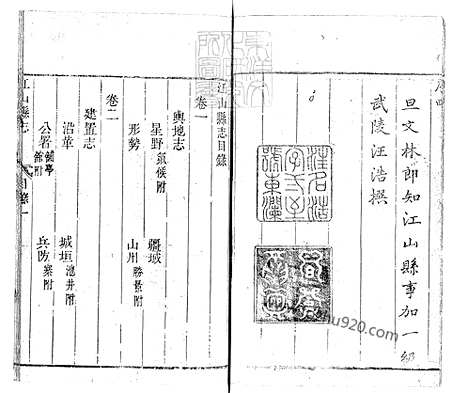 旦文林郎知江山縣事加一級
武陵汪浩撰
江山縣志目錄
卷一
輿地志
星野 氣候附 疆域
形勢 山川 勝景附
卷二
建置志
沿革 城垣 池井附
公署 舖亭館附 兵防 寨附
江山縣志 目錄 一
shu920.com